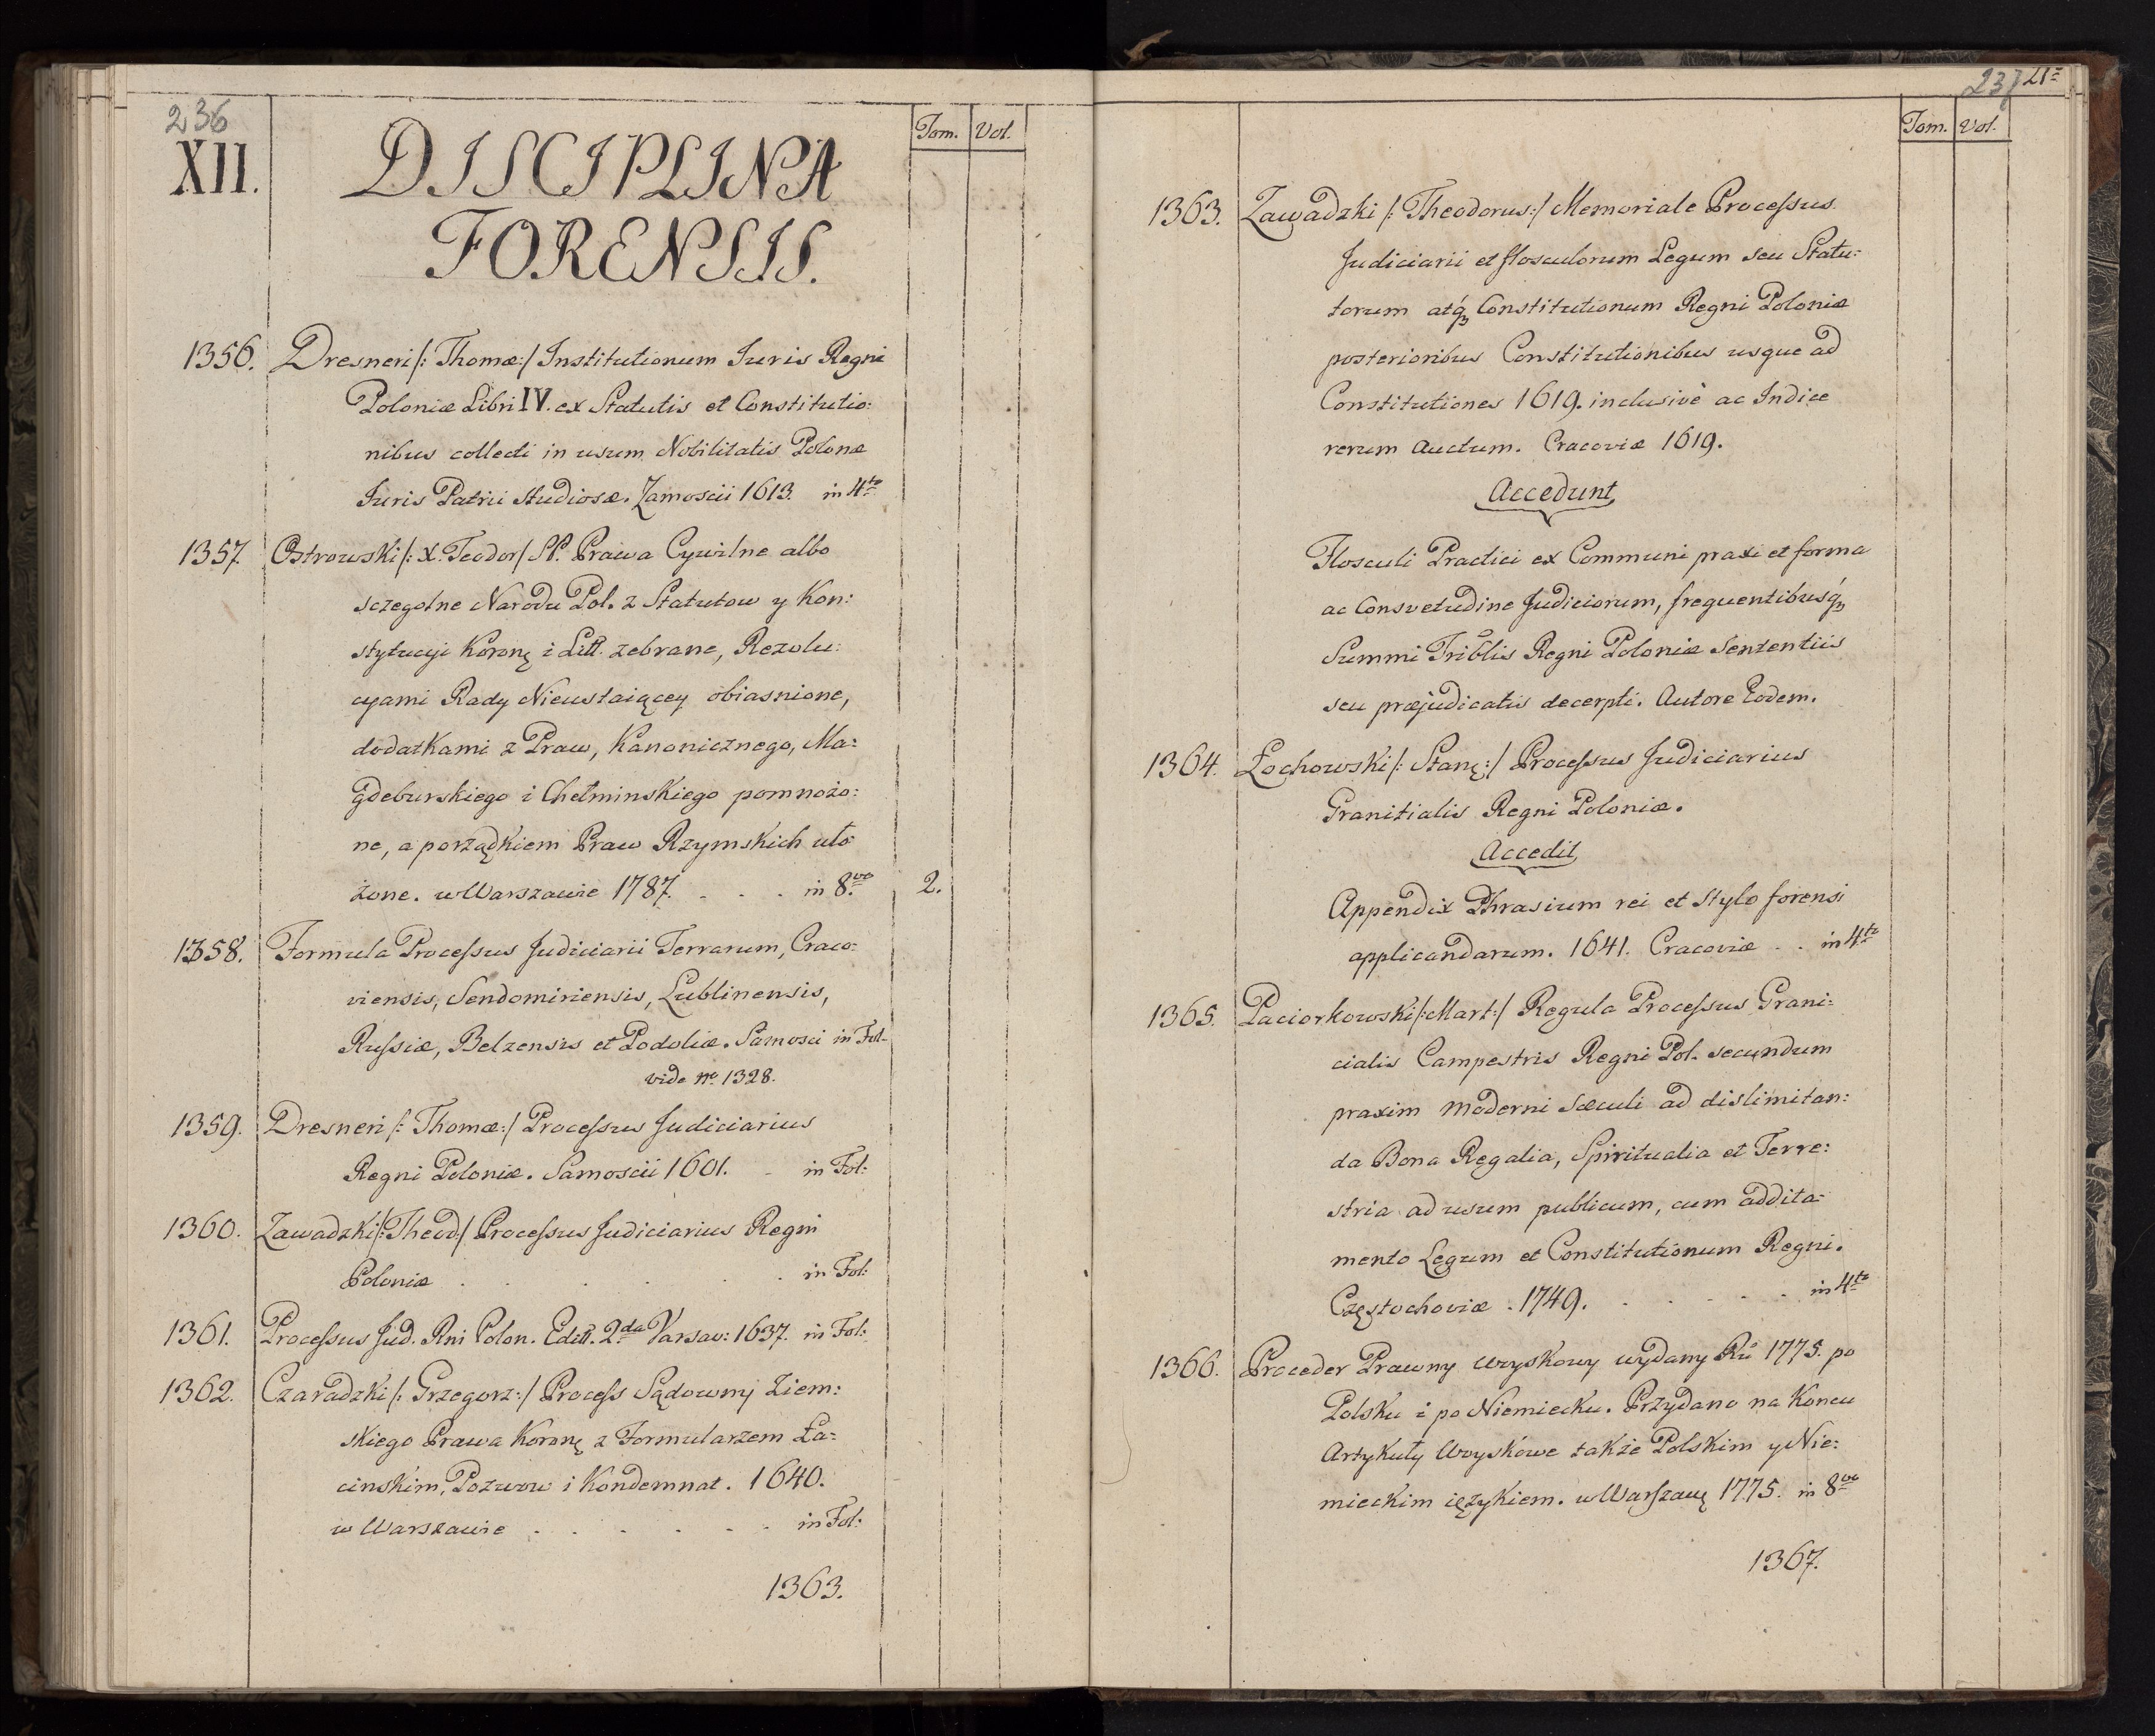 236
XII.
Tom. Vol.
DISCIPLINA
FORENSIS.
1356. Dresneri /: Thomæ:/ Institutionum Iuris Regni
Poloniæ Libri IV. ex Statutis et Constitutio:
nibus collecti in usum Nobilitatis Polonæ
Iuris Patrii studiosæ. Zamoscii 1613. in 4to
1357. Ostrowski /: X. Teodor / SP. Prawa Cywilne albo
sczegolne Narodu Pol. z Statutow y Kon:
stytucyi Koronę i Litt. zebrane, Rezolu:
cyami Rady Nieustaiącey obiasnione,
dodatkami z Praw, Kanonicznego, Ma:
gdeburskiego i Chełminskiego pomnożo:
ne, a porządkiem Praw Rzymskich uło
żone. w Warszawie 1787. . . . in 8.vo 2.
1358. Formula Processus Judiciarii Terrarum, Craco:
viensis, Sendomiriensis, Lublinensis,
Russiæ, Belzensis et Podoliæ. Samosci in Fol.
vide No. 1328.
1359. Dresneri /: Thomæ:/ Processus Judiciarius
Regni Poloniæ. Samoscii 1601. . in Fol:
1360. Zawadzki /: Theod:/ Processus Judiciarius Regni
Poloniæ . . . . . . . in Fol:
1361. Processus Jud. Rni Polon. Editt. 2da Varsav: 1637. in Fol:
1362. Czaradzki /: Grzegorz:/ Process Sądowny Ziem:
skiego Prawa Koronę z Formularzem Ła:
cinskim, Pozwow i Kondemnat. 1640.
w Warszawie . . . . . . in Fol:
1363.
237
Tom. Vol.
1363. Zawadzki /: Theodorus:/ Memoriale Processus
Judiciarii et flosculorum Legum seu Statu:
torum atq́ꝫ Constitutionum Regni Poloniæ
posterioribus Constitutionibus usque ad
Constitutiones 1619. inclusivè ac Indice
rerum Auctum. Cracoviæ 1619.
Accedunt
Flosculi Practici ex Communi praxi et forma
ac Consvetudine Judiciorum, frequentibusq́ꝫ
Summi Triblis Regni Poloniæ Sententiis
seu præjudicatis decerpti. Autore Eodem.
1364. Łochowski /: Stanę:/ Processus Judiciarius
Granitialis Regni Poloniæ.
Accedit
Appendix Phrasium rei et Stylo forensi
applicandarum. 1641. Cracoviæ . . in 4to
1365. Paciorkowski /: Mart:/ Regula Processus Grani:
cialis Campestris Regni Pol. secundum
praxim moderni Sæculi ad dislimitan:
da Bona Regalia, Spiritualia et Terre:
stria ad usum publicum, cum addita:
mento Legum et Constitutionum Regni.
Częstochoviæ . 1749. . . . . . in 4to
1366. Proceder Prawny woyskowy wydany Ru 1775. po
Polsku i po Niemiecku. Przydano na Koncu
Artykuły Woyskowe także Polskim y Nie:
mieckim ięzykiem. w Warszawę 1775. in 8vo
1367.